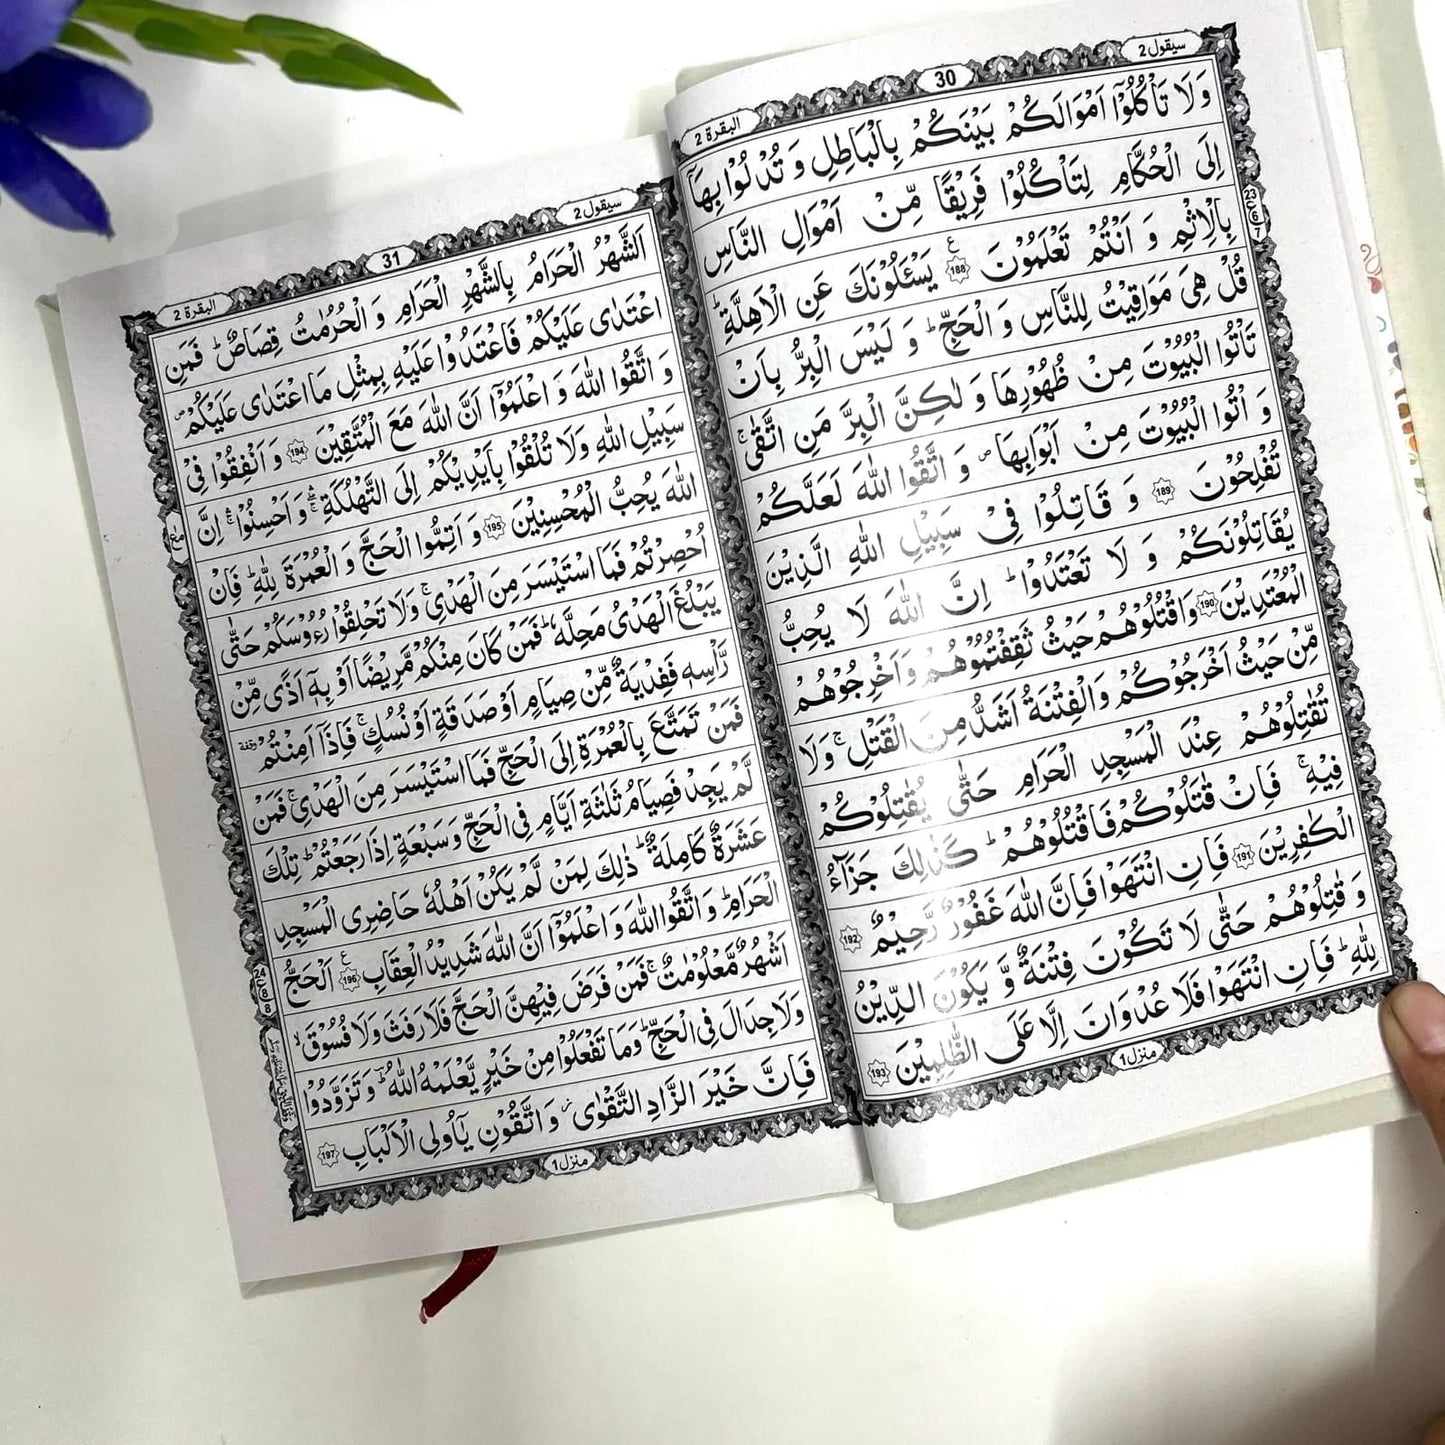 سيقول 2
30
البقرة 2
وَلَا تَاْكُلُوْٓا اَمْوَالَكُمْ بَيْنَكُمْ بِالْبَاطِلِ وَ تُدْلُوْا بِهَآ
اِلَى الْحُكَّامِ لِتَاْكُلُوْا فَرِيْقًا مِّنْ اَمْوَالِ النَّاسِ
بِالْاِثْمِ وَ اَنْتُمْ تَعْلَمُوْنَ 188 ع يَسْـَٔلُوْنَكَ عَنِ الْاَهِلَّةِ ؕ
قُلْ هِيَ مَوَاقِيْتُ لِلنَّاسِ وَ الْحَجِّ ؕ وَ لَيْسَ الْبِرُّ بِاَنْ
تَاْتُوا الْبُيُوْتَ مِنْ ظُهُوْرِهَا وَ لٰكِنَّ الْبِرَّ مَنِ اتَّقٰى ۚ
وَ اْتُوا الْبُيُوْتَ مِنْ اَبْوَابِهَا ۪ وَ اتَّقُوا اللّٰهَ لَعَلَّكُمْ
تُفْلِحُوْنَ 189 وَ قَاتِلُوْا فِيْ سَبِيْلِ اللّٰهِ الَّذِيْنَ
يُقَاتِلُوْنَكُمْ وَ لَا تَعْتَدُوْا ؕ اِنَّ اللّٰهَ لَا يُحِبُّ
الْمُعْتَدِيْنَ 190 وَاقْتُلُوْهُمْ حَيْثُ ثَقِفْتُمُوْهُمْ وَاَخْرِجُوْهُمْ
مِّنْ حَيْثُ اَخْرَجُوْكُمْ وَالْفِتْنَةُ اَشَدُّ مِنَ الْقَتْلِ ۚ وَلَا
تُقٰتِلُوْهُمْ عِنْدَ الْمَسْجِدِ الْحَرَامِ حَتّٰى يُقٰتِلُوْكُمْ
فِيْهِ ۚ فَاِنْ قٰتَلُوْكُمْ فَاقْتُلُوْهُمْ ؕ كَذٰلِكَ جَزَآءُ
الْكٰفِرِيْنَ 191 فَاِنِ انْتَهَوْا فَاِنَّ اللّٰهَ غَفُوْرٌ رَّحِيْمٌ 192
وَ قٰتِلُوْهُمْ حَتّٰى لَا تَكُوْنَ فِتْنَةٌ وَّ يَكُوْنَ الدِّيْنُ
لِلّٰهِ ؕ فَاِنِ انْتَهَوْا فَلَا عُدْوَانَ اِلَّا عَلَى الظّٰلِمِيْنَ 193
منزل 1
23
ع
6
7
سيقول 2
31
البقرة 2
اَلشَّهْرُ الْحَرَامُ بِالشَّهْرِ الْحَرَامِ وَ الْحُرُمٰتُ قِصَاصٌ ؕ فَمَنِ
اعْتَدٰى عَلَيْكُمْ فَاعْتَدُوْا عَلَيْهِ بِمِثْلِ مَا اعْتَدٰى عَلَيْكُمْ ۪
وَ اتَّقُوا اللّٰهَ وَ اعْلَمُوْٓا اَنَّ اللّٰهَ مَعَ الْمُتَّقِيْنَ 194 وَ اَنْفِقُوْا فِيْ
سَبِيْلِ اللّٰهِ وَلَا تُلْقُوْا بِاَيْدِيْكُمْ اِلَى التَّهْلُكَةِ ۛۚ وَ اَحْسِنُوْا ۛۚ اِنَّ
اللّٰهَ يُحِبُّ الْمُحْسِنِيْنَ 195 وَ اَتِمُّوا الْحَجَّ وَ الْعُمْرَةَ لِلّٰهِ ؕ فَاِنْ
اُحْصِرْتُمْ فَمَا اسْتَيْسَرَ مِنَ الْهَدْيِ ۚ وَلَا تَحْلِقُوْا رُءُوْسَكُمْ حَتّٰى
يَبْلُغَ الْهَدْيُ مَحِلَّهٗ ؕ فَمَنْ كَانَ مِنْكُمْ مَّرِيْضًا اَوْ بِهٖٓ اَذًى مِّنْ
رَّاْسِهٖ فَفِدْيَةٌ مِّنْ صِيَامٍ اَوْ صَدَقَةٍ اَوْ نُسُكٍ ۚ فَاِذَآ اَمِنْتُمْ وقفة
فَمَنْ تَمَتَّعَ بِالْعُمْرَةِ اِلَى الْحَجِّ فَمَا اسْتَيْسَرَ مِنَ الْهَدْيِ ۚ فَمَنْ
لَّمْ يَجِدْ فَصِيَامُ ثَلٰثَةِ اَيَّامٍ فِي الْحَجِّ وَ سَبْعَةٍ اِذَا رَجَعْتُمْ ؕ تِلْكَ
عَشَرَةٌ كَامِلَةٌ ؕ ذٰلِكَ لِمَنْ لَّمْ يَكُنْ اَهْلُهٗ حَاضِرِي الْمَسْجِدِ
الْحَرَامِ ؕ وَ اتَّقُوا اللّٰهَ وَ اعْلَمُوْٓا اَنَّ اللّٰهَ شَدِيْدُ الْعِقَابِ 196 ع اَلْحَجُّ
اَشْهُرٌ مَّعْلُوْمٰتٌ ۚ فَمَنْ فَرَضَ فِيْهِنَّ الْحَجَّ فَلَا رَفَثَ وَ لَا فُسُوْقَ ۙ
وَ لَا جِدَالَ فِي الْحَجِّ ؕ وَمَا تَفْعَلُوْا مِنْ خَيْرٍ يَّعْلَمْهُ اللّٰهُ ؕ وَ تَزَوَّدُوْا
فَاِنَّ خَيْرَ الزَّادِ التَّقْوٰى ز وَ اتَّقُوْنِ يٰٓاُولِي الْاَلْبَابِ 197
منزل 1
24
ع
8
8